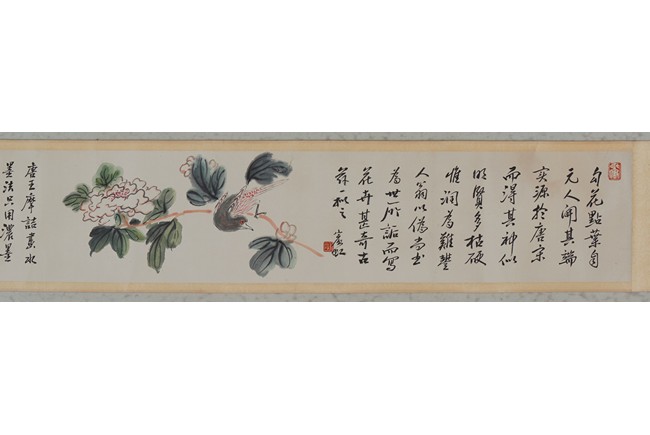 勾花點葉自
元人開其端
實源於唐宋
而得其神似
明賢多枯硬
惟潤為難
人翁以偽
為世所詬而寫
花卉甚奇古
賓虹
唐王摩詰畫水
墨法只用濃墨